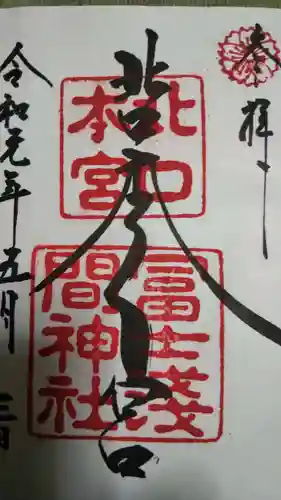 奉拝
北口本宮
北口
本宮
冨士浅
間神社
令和元年五月三日